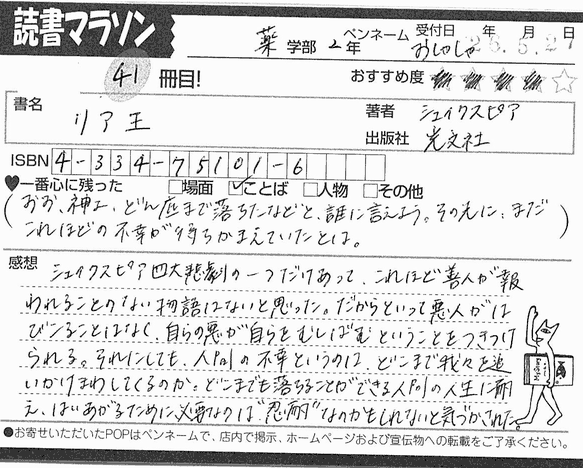 読書マラソン
薬 学部 2年 ペンネーム おしゃしゃ 受付日 年 月 日 26.5.27
41 冊目! おすすめ度 ★★★★☆
書名 リア王 著者 シェイクスピア
出版社 光文社
ISBN 4-334-75101-6
♥一番心に残った □場面 ☑ことば □人物 □その他
(おお、神よ、どん底まで落ちたなどと、誰に言えよう。その先に、まだ
これほどの不幸が待ちかまえていたとは。)
感想 シェイクスピア四大悲劇の一つだけあって、これほど善人が報
われることのない物語はないと思った。だからといって悪人がは
びこることはなく、自らの悪が自らをむしばむということをつきつけ
られる。それにしても、人間の不幸というのは、どこまで我々を追
いかけまわしてくるのか。どこまでも落ちることができる人間の人生に耐
え、はいあがるために必要なのは"忍耐"なのかもしれないと気づかされた。
●お寄せいただいたPOPはペンネームで、店内で掲示、ホームページおよび宣伝物への転載をご了承ください。